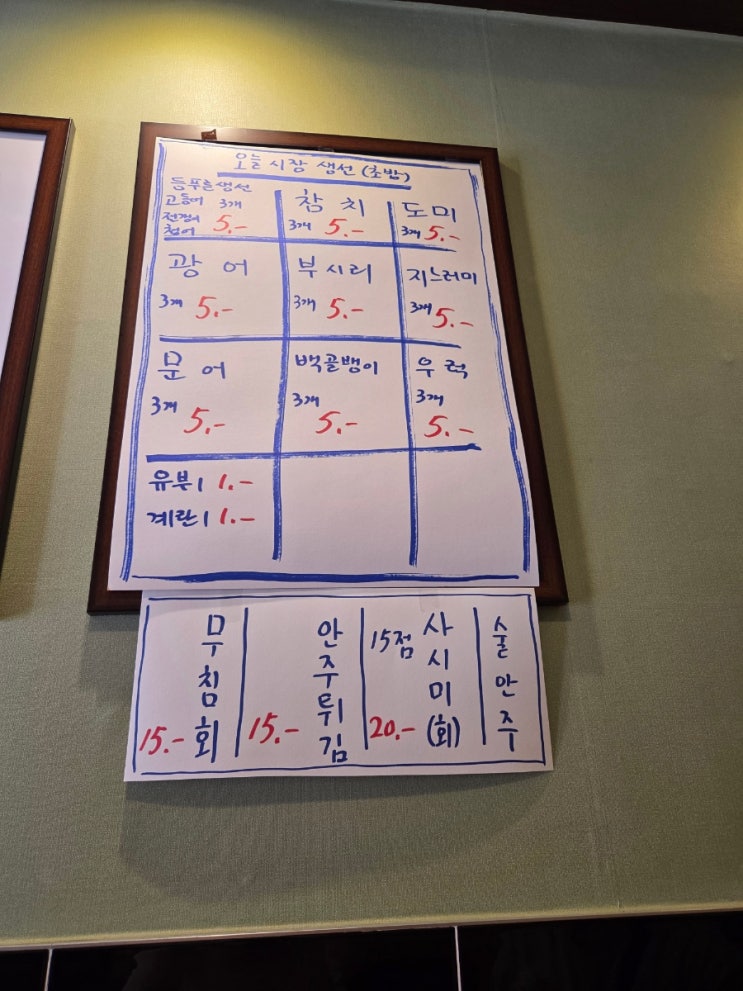 오늘 시장 생선 (초밥)
등푸른생선
고등어 3개
전갱이
청어 5.-
참치
3개 5.-
도미
3개 5.-
광어
3개 5.-
부시리
3개 5.-
지느러미
3개 5.-
문어
3개 5.-
백골뱅이
3개 5.-
우럭
3개 5.-
유부 1 1.-
계란 1 1.-
술안주
사시미(회)
15점
20.-
안주튀김
15.-
무침회
15.-